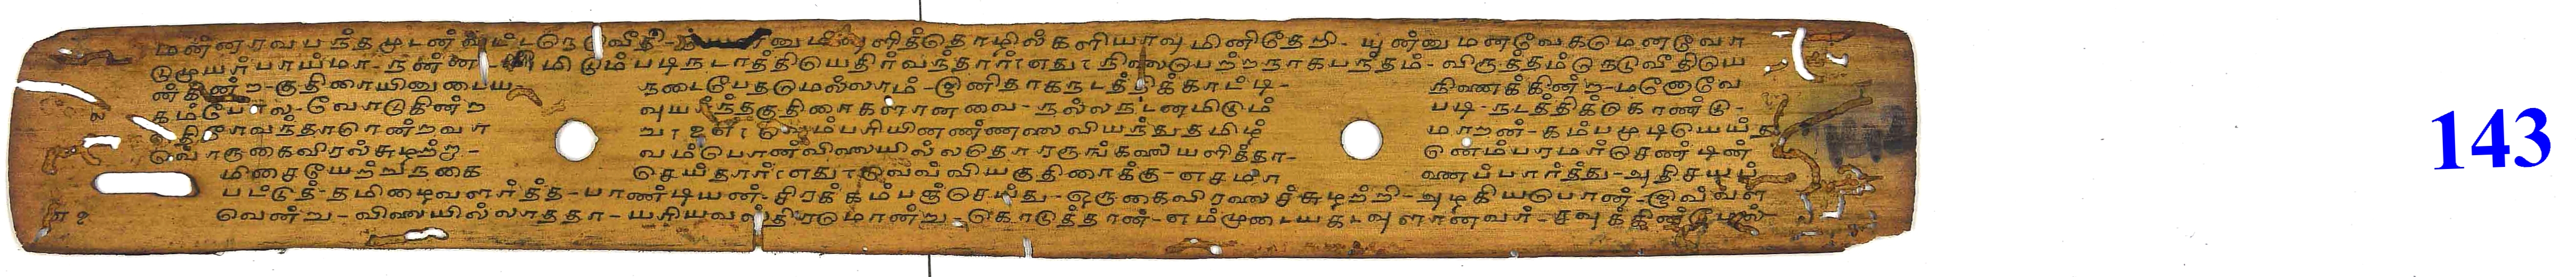 மன்னரவபந்தமுடன் விட்டுநெடுவீதி- னுமவுளித்தொழில்களியாவுமினிதேறி- முன்னுமனவேகமெனவோ
டுமுயர்பாய்மா- நன்ன மிடும்படிநடாத்தியெதிர்வந்தார் எது நிலைபெற்றநாகபந்தம்- விருத்தம் நெடுவீதியே
ன்கின்ற- குதிரையினுடைய நடைபேதமெல்லாம்- இனிதாகநடத்திக்காட்டி- நினைக்கின்ற- மனோவே
கம்போல்- வோடுகின்ற வுயர்ந்தகுதிரைகளானவை- நல்லநடனமிடும் படி- நடத்திக்கொண்டு-
எதிரேவந்தாரென்றவா று உள எம்பரியினெண்ணலைவியந்துதமிழ் மாறன்- கம்பமுடியெய்த
வொருகைவிரல்சுழற்ற- வம்பொண்விலையில்லதொரருங்கலையளித்தா- னெம்பரமர்செண்டின்
மிசையேற்றிநகை செய்தார் எது இவ்வியகுதிரைக்கு- எசமா னைப்பார்த்து- அதிசயப்
பட்டுத்- தமிழைவளர்த்த- பாண்டியன்- சிரக்கம்பஞ்செய்து- ஒருகைவிரலைச்சுழற்றி- அழகியபொன்- இவ்வள
வென்று- விலையில்லாததா- யரியவஸ்திரமொன்று- கொடுத்தான்- எம்முடையகடவுளானவர்- சவுக்கின்மேல்
143